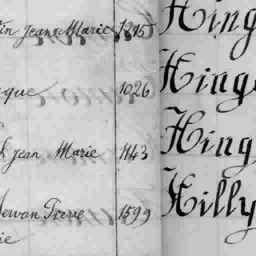 in Jeans Marie 1215
Hing
que 1026
Hing
jean Marie 1143
Hing
Pierre 1599
Hilly
ie